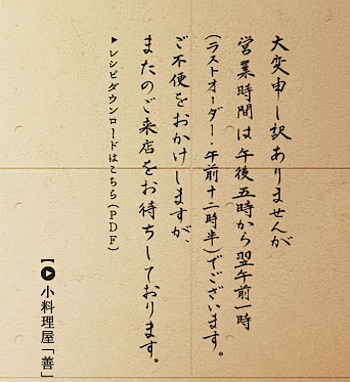 大変申し訳ありませんが
営業時間は午後五時から翌午前一時
(ラストオーダー・午前十二時半)でございます。
ご不便をおかけしますが、
またのご来店をお待ちしております。
▶レシピダウンロードはこちら(PDF)
【▶小料理屋「善」